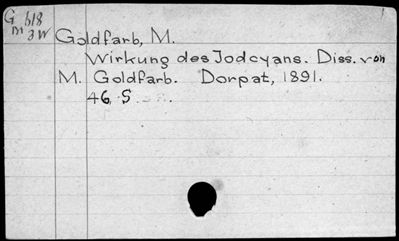 G 618
m 3W
Goldfarb, M.
Wirkung des Jodcyans. Diss. von
M. Goldfarb. Dorpat, 1891.
46 S